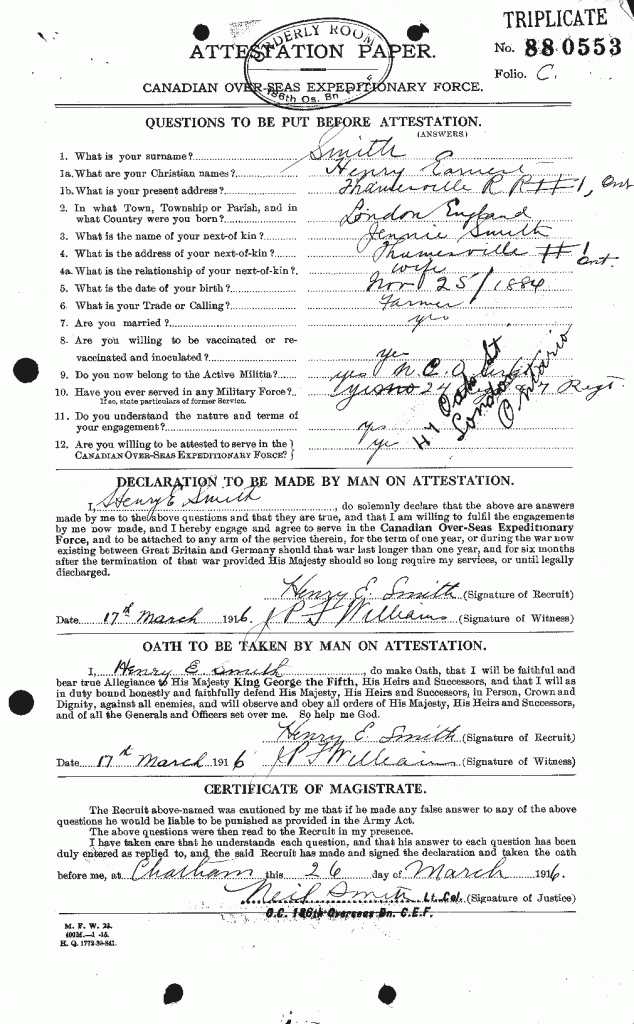 TRIPLICATE
ORDERLY ROOM
186th Os. Bn
ATTESTATION PAPER.
No. 880553
Folio. C.
CANADIAN OVER-SEAS EXPEDITIONARY FORCE.
QUESTIONS TO BE PUT BEFORE ATTESTATION.
(ANSWERS)
1. What is your surname? Smith
1a. What are your Christian names? Henry Earnest
1b. What is your present address? Thamesville R R #1, Ont
2. In what Town, Township or Parish, and in
what Country were you born? London England
3. What is the name of your next-of kin? Jennie Smith
4. What is the address of your next-of-kin? Thamesville #1 Ont.
4a. What is the relationship of your next-of-kin? wife
5. What is the date of your birth? Nov 25/1884
6. What is your Trade or Calling? Farmer
7. Are you married? yes
8. Are you willing to be vaccinated or re-
vaccinated and inoculated? yes
9. Do you now belong to the Active Militia? yes
10. Have you ever served in any Military Force? yes no 24 Regt.
If so, state particulars of former Service.
11. Do you understand the nature and terms of
your engagement? yes
12. Are you willing to be attested to serve in the
CANADIAN OVER-SEAS EXPEDITIONARY FORCE? yes
47 Oak St
London
Ontario
DECLARATION TO BE MADE BY MAN ON ATTESTATION.
I, Henry E Smith, do solemnly declare that the above are answers
made by me to the above questions and that they are true, and that I am willing to fulfil the engagements
by me now made, and I hereby engage and agree to serve in the Canadian Over-Seas Expeditionary
Force, and to be attached to any arm of the service therein, for the term of one year, or during the war now
existing between Great Britain and Germany should that war last longer than one year, and for six months
after the termination of that war provided His Majesty should so long require my services, or until legally
discharged.
Henry E. Smith (Signature of Recruit)
Date 17th March 1916. J P F Williams (Signature of Witness)
OATH TO BE TAKEN BY MAN ON ATTESTATION.
I, Henry E Smith, do make Oath, that I will be faithful and
bear true Allegiance to His Majesty King George the Fifth, His Heirs and Successors, and that I will as
in duty bound honestly and faithfully defend His Majesty, His Heirs and Successors, in Person, Crown and
Dignity, against all enemies, and will observe and obey all orders of His Majesty, His Heirs and Successors,
and of all the Generals and Officers set over me. So help me God.
Henry E Smith (Signature of Recruit)
Date 17th March 1916 J P F Williams (Signature of Witness)
CERTIFICATE OF MAGISTRATE.
The Recruit above-named was cautioned by me that if he made any false answer to any of the above
questions he would be liable to be punished as provided in the Army Act.
The above questions were then read to the Recruit in my presence.
I have taken care that he understands each question, and that his answer to each question has been
duly entered as replied to, and the said Recruit has made and signed the declaration and taken the oath
before me, at Chatham this 26 day of March 1916.
Neil Smith Lt. Col. (Signature of Justice)
O.C. 186th Overseas Bn. C.E.F.
M. F. W. 23.
400M.—1-15.
H. Q. 1772-39-841.